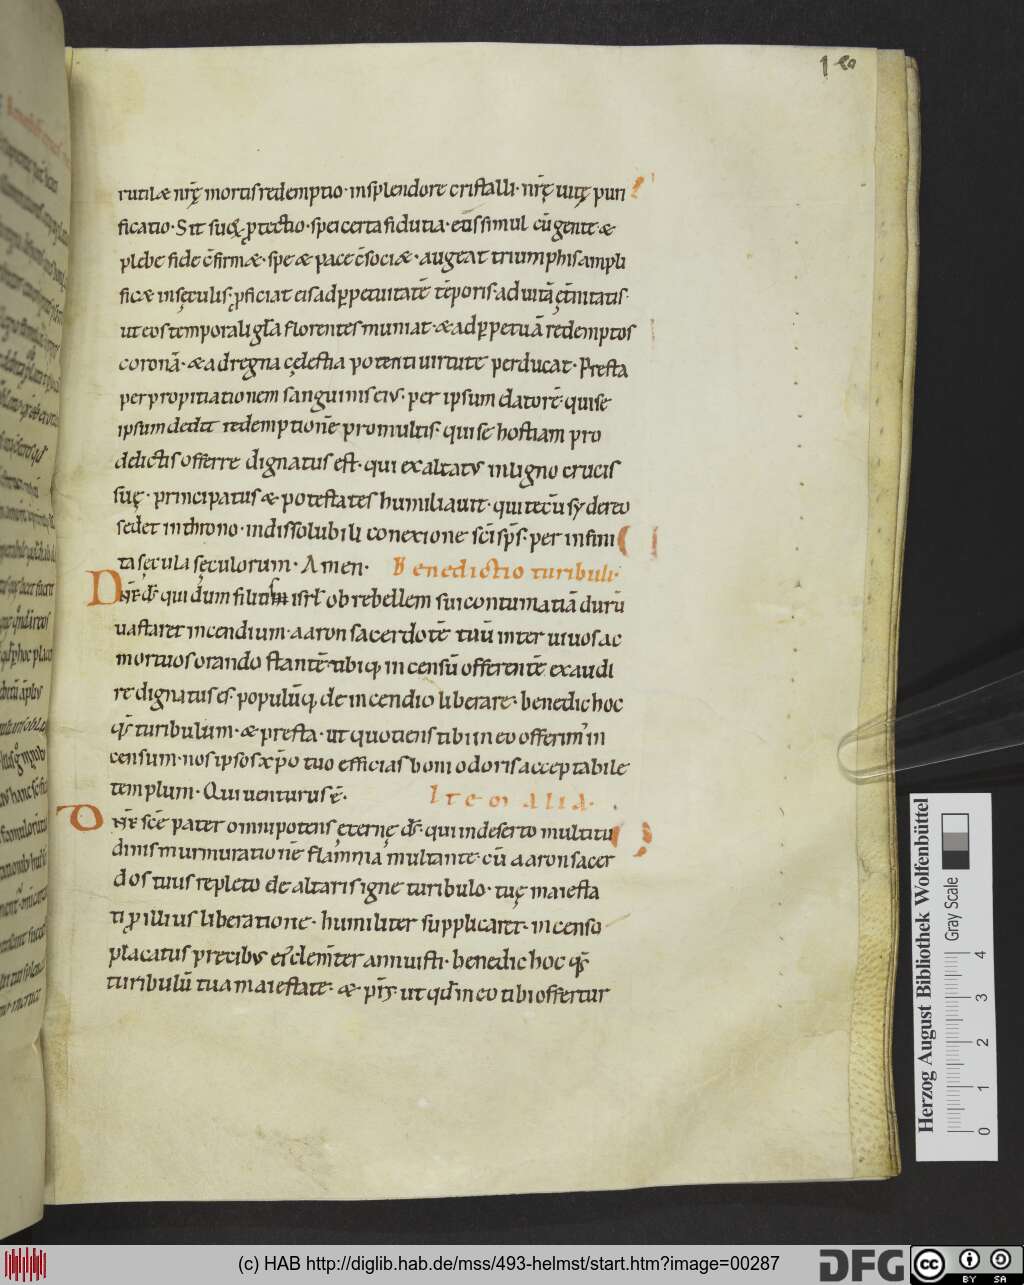 rutilæ nr̄ę mortis redemptio · insplendore cristalli · nr̄ę uitę puri
ficatio · Sit suoꝝ ꝓtectio · spei certa fidutia · etiā simul cū gente æ
plebe fide c̄firmæ · spe æ pace c̄sociæ · augeat triumphis ampli
ficæ insęculis · ꝓficiat eis ad ꝑpetuitatē tēporis · aduitā ęt̄nitatis ·
ut eos temporali gl̄a florentes muniat · æ adꝑpetuā redemptos
coronā · æ adregna cęlestia potenti uirtute perducat · Presta
per propitiationem sanguinis eius · per ipsum datorē · qui se
ipsum dedit redemptionē promultis · qui se hostiam pro
delictis offerre dignatus est · qui exaltatus inligno crucis
suę · principatus æ potestates humiliauit · qui tecū sydereo
sedet inthrono · indissolubili conexione sc̄i sp̄s · per infini
ta sęcula sęculorum · Amen · Benedictio turibuli ·
Dn̄e d̄s qui dum filiis isrl̄ ob rebellem sui contumatiā durū
uastaret incendium · aaron sacerdotē tuū inter uiuos ac
mortuos orando stantē tibiq; incensū offerentē exaudi
re dignatus es · populūq; de incendio liberare · benedic hoc
qs̄ turibulum · æ presta · ut quotiens tibi in eo offerim̄ in
censum · nos ipsos xp̄o tuo efficias boni odoris acceptabile
templum · Qui uenturus ē ·
Item alia ·
Dn̄e sc̄e pater omnipotens ęternę d̄s · qui indeserto multitu
dinis murmurationē flammā multante · cū aaron sacer
dos tuus repleto de altaris igne turibulo · tuę maiesta
ti ꝓ illius liberatione · humiliter supplicaret · incenso
placatus precibus ei clem̄ter annuisti · benedic hoc qs̄
turibulū tua maiestate · æ p̄ſ · ut qd̄ in eo tibi offertur
Herzog August Bibliothek Wolfenbüttel
Gray Scale
0 1 2 3 4
(c) HAB http://diglib.hab.de/mss/493-helmst/start.htm?image=00287
DFG
cc BY SA